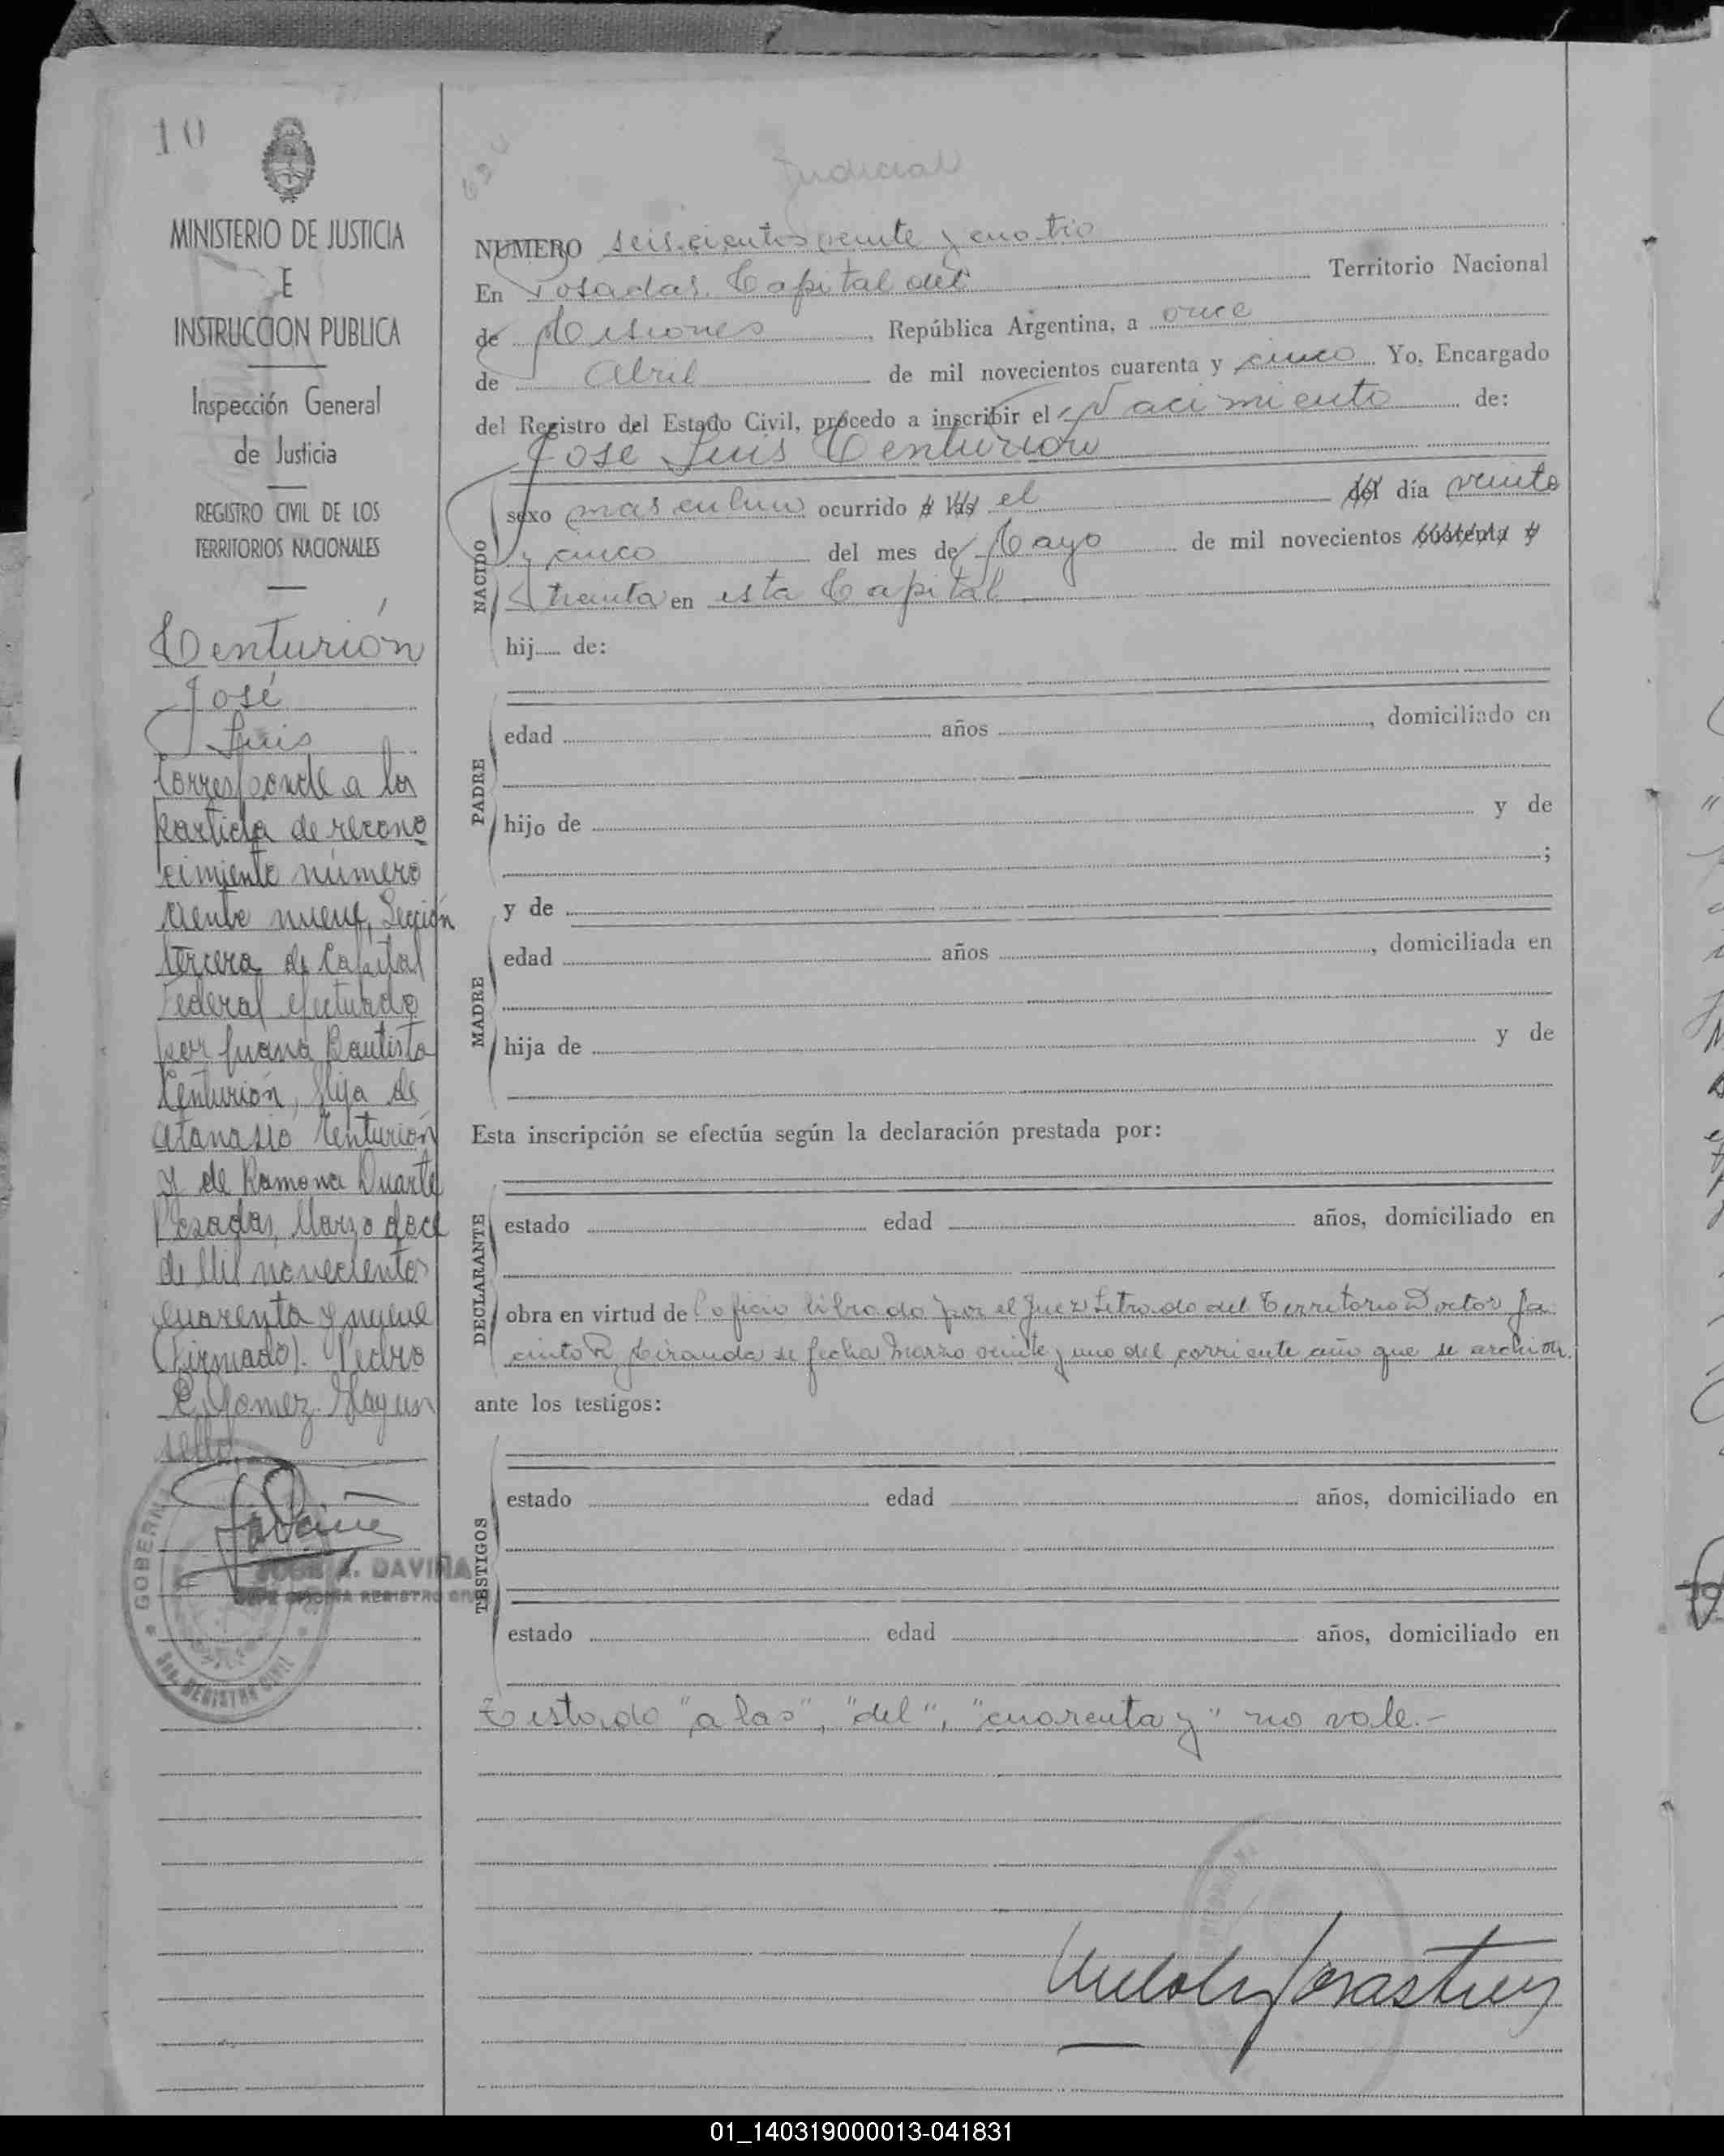 10
MINISTERIO DE JUSTICIA
E
INSTRUCCION PUBLICA
Inspección General
de Justicia
REGISTRO CIVIL DE LOS
TERRITORIOS NACIONALES
Centurión
José
Luis
Corresponde a la
partida de recono
cimiento número
ciento nueve, Sección
tercera de Capital
Federal efectuado
por Juana Bautista
Centurión, hija de
Atanasio Centurión
y de Ramona Duarte
Posadas, Marzo doce
de Mil novecientos
cuarenta y nueve
(Firmado). Pedro
E. Gomez. Hay un
sello.
JOSE A. DAVIÑA
JEFE OFICINA REGISTRO CIVIL
GOBERN
REGISTRO CIVIL
624
Judicial
NUMERO seiscientos veinte y cuatro
En Posadas, Capital del Territorio Nacional
de Misiones, República Argentina, a once
de Abril de mil novecientos cuarenta y cinco Yo, Encargado
del Registro del Estado Civil, procedo a inscribir el Nacimiento de:
Jose Luis Centurion
NACIDO
sexo masculino ocurrido a las el del día veinte
y cinco del mes de Mayo de mil novecientos cuarenta y
treinta en esta Capital
hij..... de:
PADRE
edad años , domiciliado en
hijo de y de
;
y de
MADRE
edad años , domiciliada en
hija de y de
Esta inscripción se efectúa según la declaración prestada por:
DECLARANTE
estado edad años, domiciliado en
obra en virtud del oficio librado por el Juez Letrado del Territorio Doctor Ja
cinto R. Miranda de fecha Marzo veinte y uno del corriente año que se archiva.
ante los testigos:
TESTIGOS
estado edad años, domiciliado en
estado edad años, domiciliado en
Testado "a las", "del", "cuarenta y" no vale.-
01_140319000013-041831